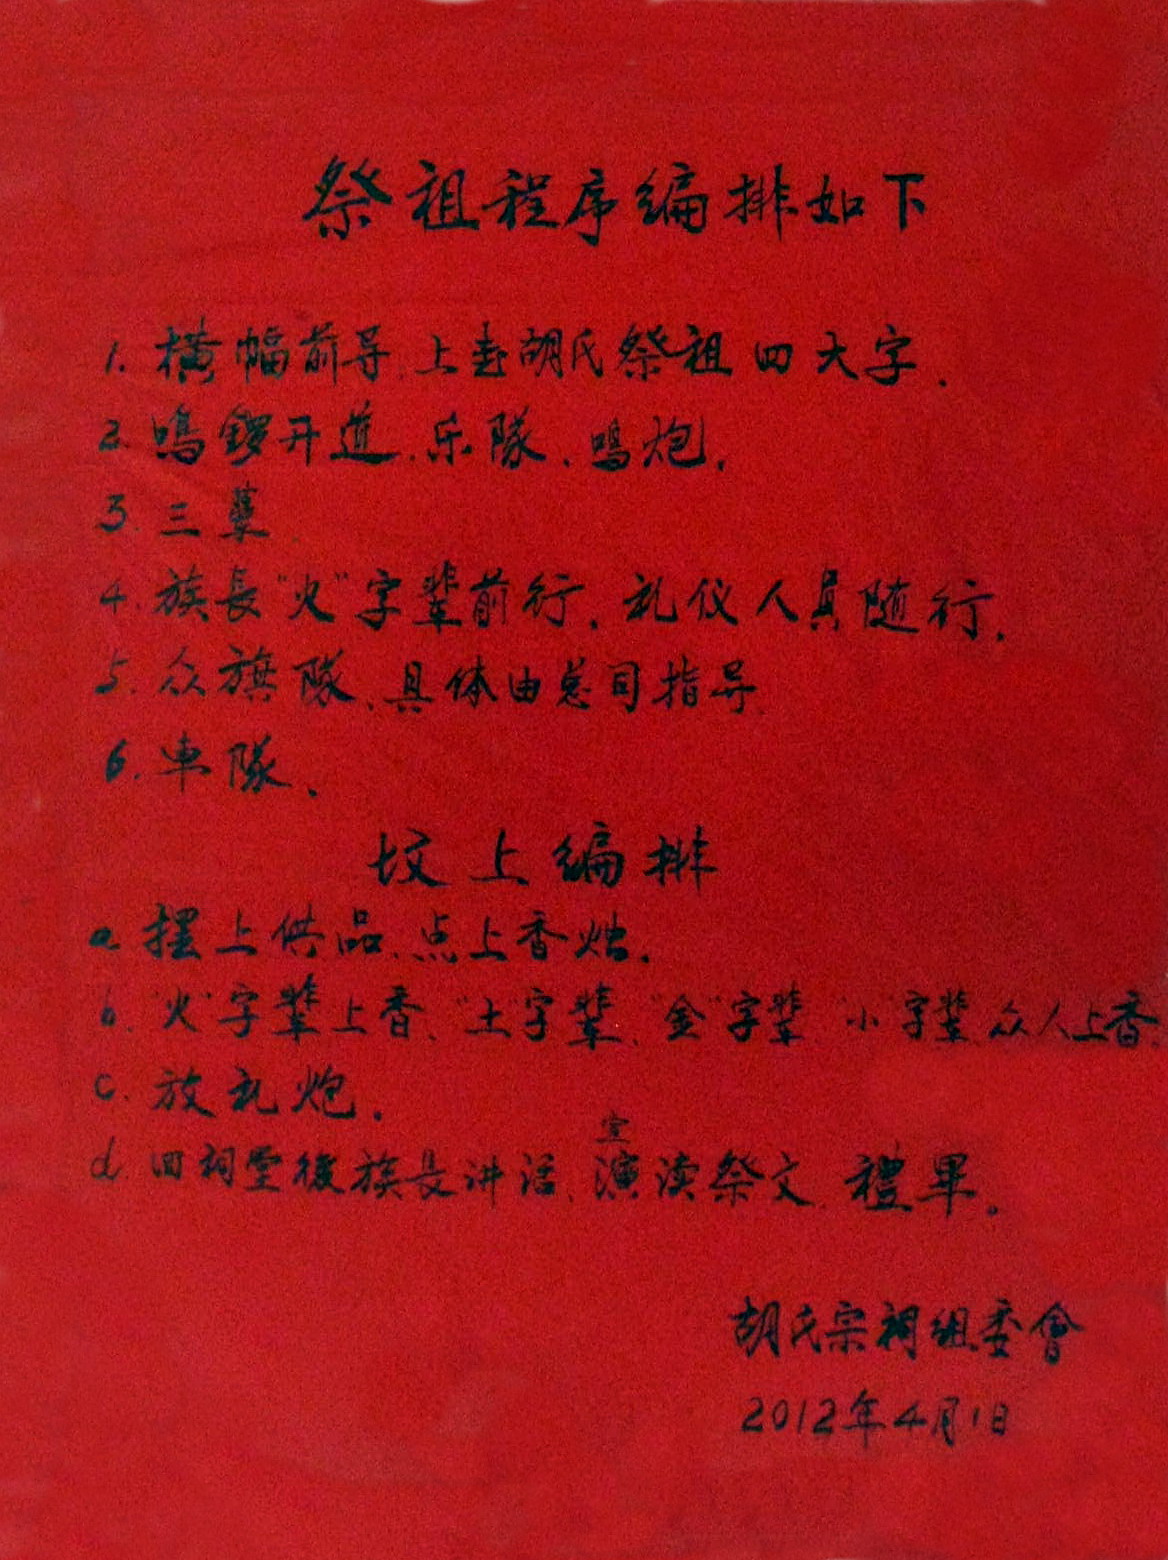 祭祖程序编排如下
1. 横幅前导、上书胡氏祭祖四大字.
2. 鳴鑼开道、乐隊、鳴炮.
3. 三
4. 族長“火”字辈前行. 礼仪人員随行.
5. 众旗隊、具体由总司指导
6. 車隊、
坟上编排
a 摆上供品、点上香烛.
b. “火”字辈上香、“土”字辈、“金”字辈“小”字辈、众人上香.
c. 放礼炮.
宣
d. 回祠堂後族長讲话、演读祭文 禮畢。
胡氏宗祠组委會
2012年4月1日